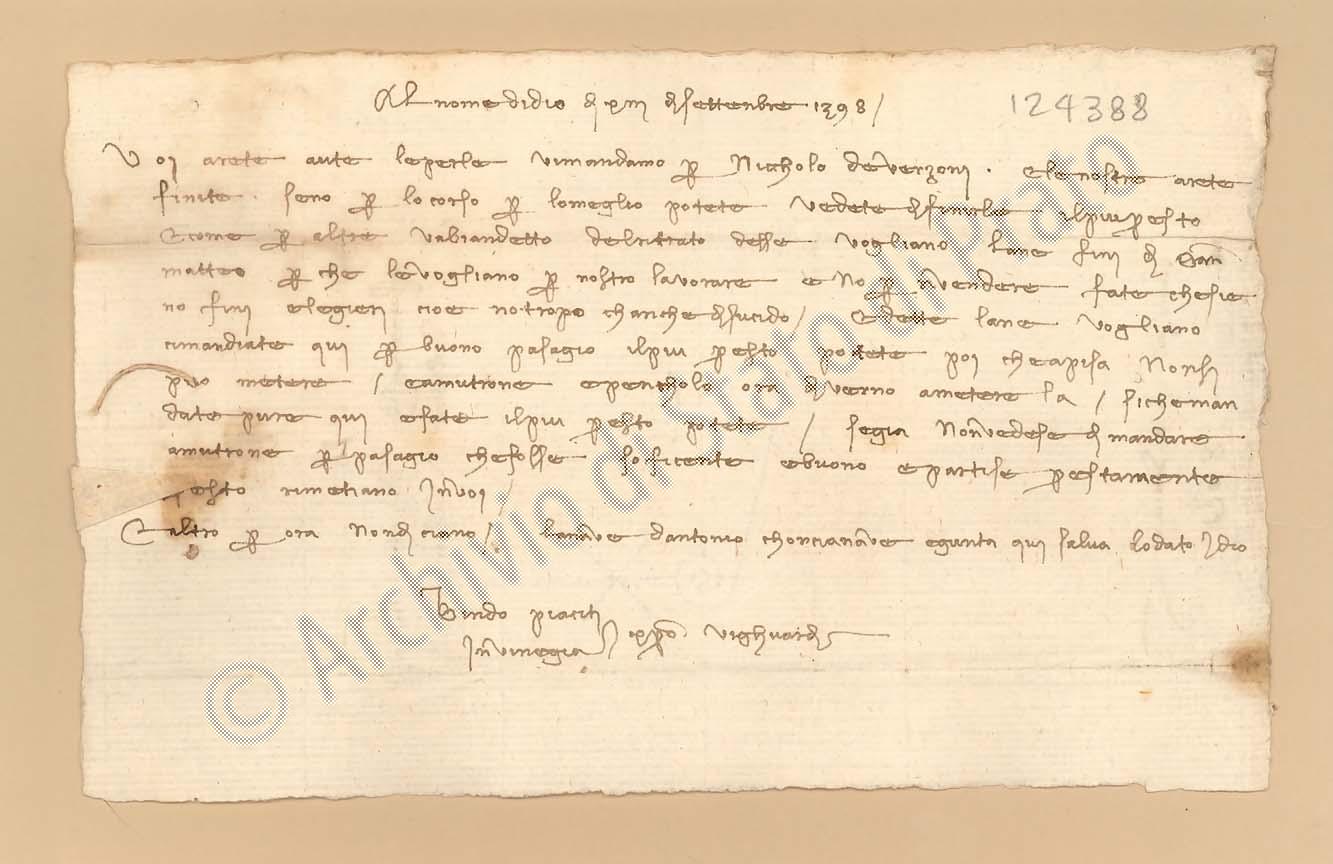 Al nome di dio dì xiii di settenbre 1398 /
124388
Voi arete aute le perle vi mandamo per Niccholo de Verzoni . E le nostre arete
finite . seno per lo corso per lo meglio potete vedete di finirle il piu presto
E come per altre v abiamo detto del ritrato desse vogliano lane fini di San
matteo per che le vogliano per nostro lavorare e no per rivendere fate che sie
no fini e legieri cioe no tropo chariche di sucido / E dette lane vogliano
ci mandiate qui per buono pasagio il piu presto potete poi che a pisa Non si
puo metere / e a mutrone e pericholo ora di verno a metere la / si che man
date pure qui e fate il piu presto potete / se gia Non vedese di mandare
a mutrone per pasagio che fosse soficente e buono e partise prestamente
questo rimetiano In voi /
E altro per ora Non diciano / la nave d antonio chon cia nave e giunta qui salva lodato Idio
Bindo piaciti
In vinegia / xpo vi ghuardi
© Archivio di Stato di Prato